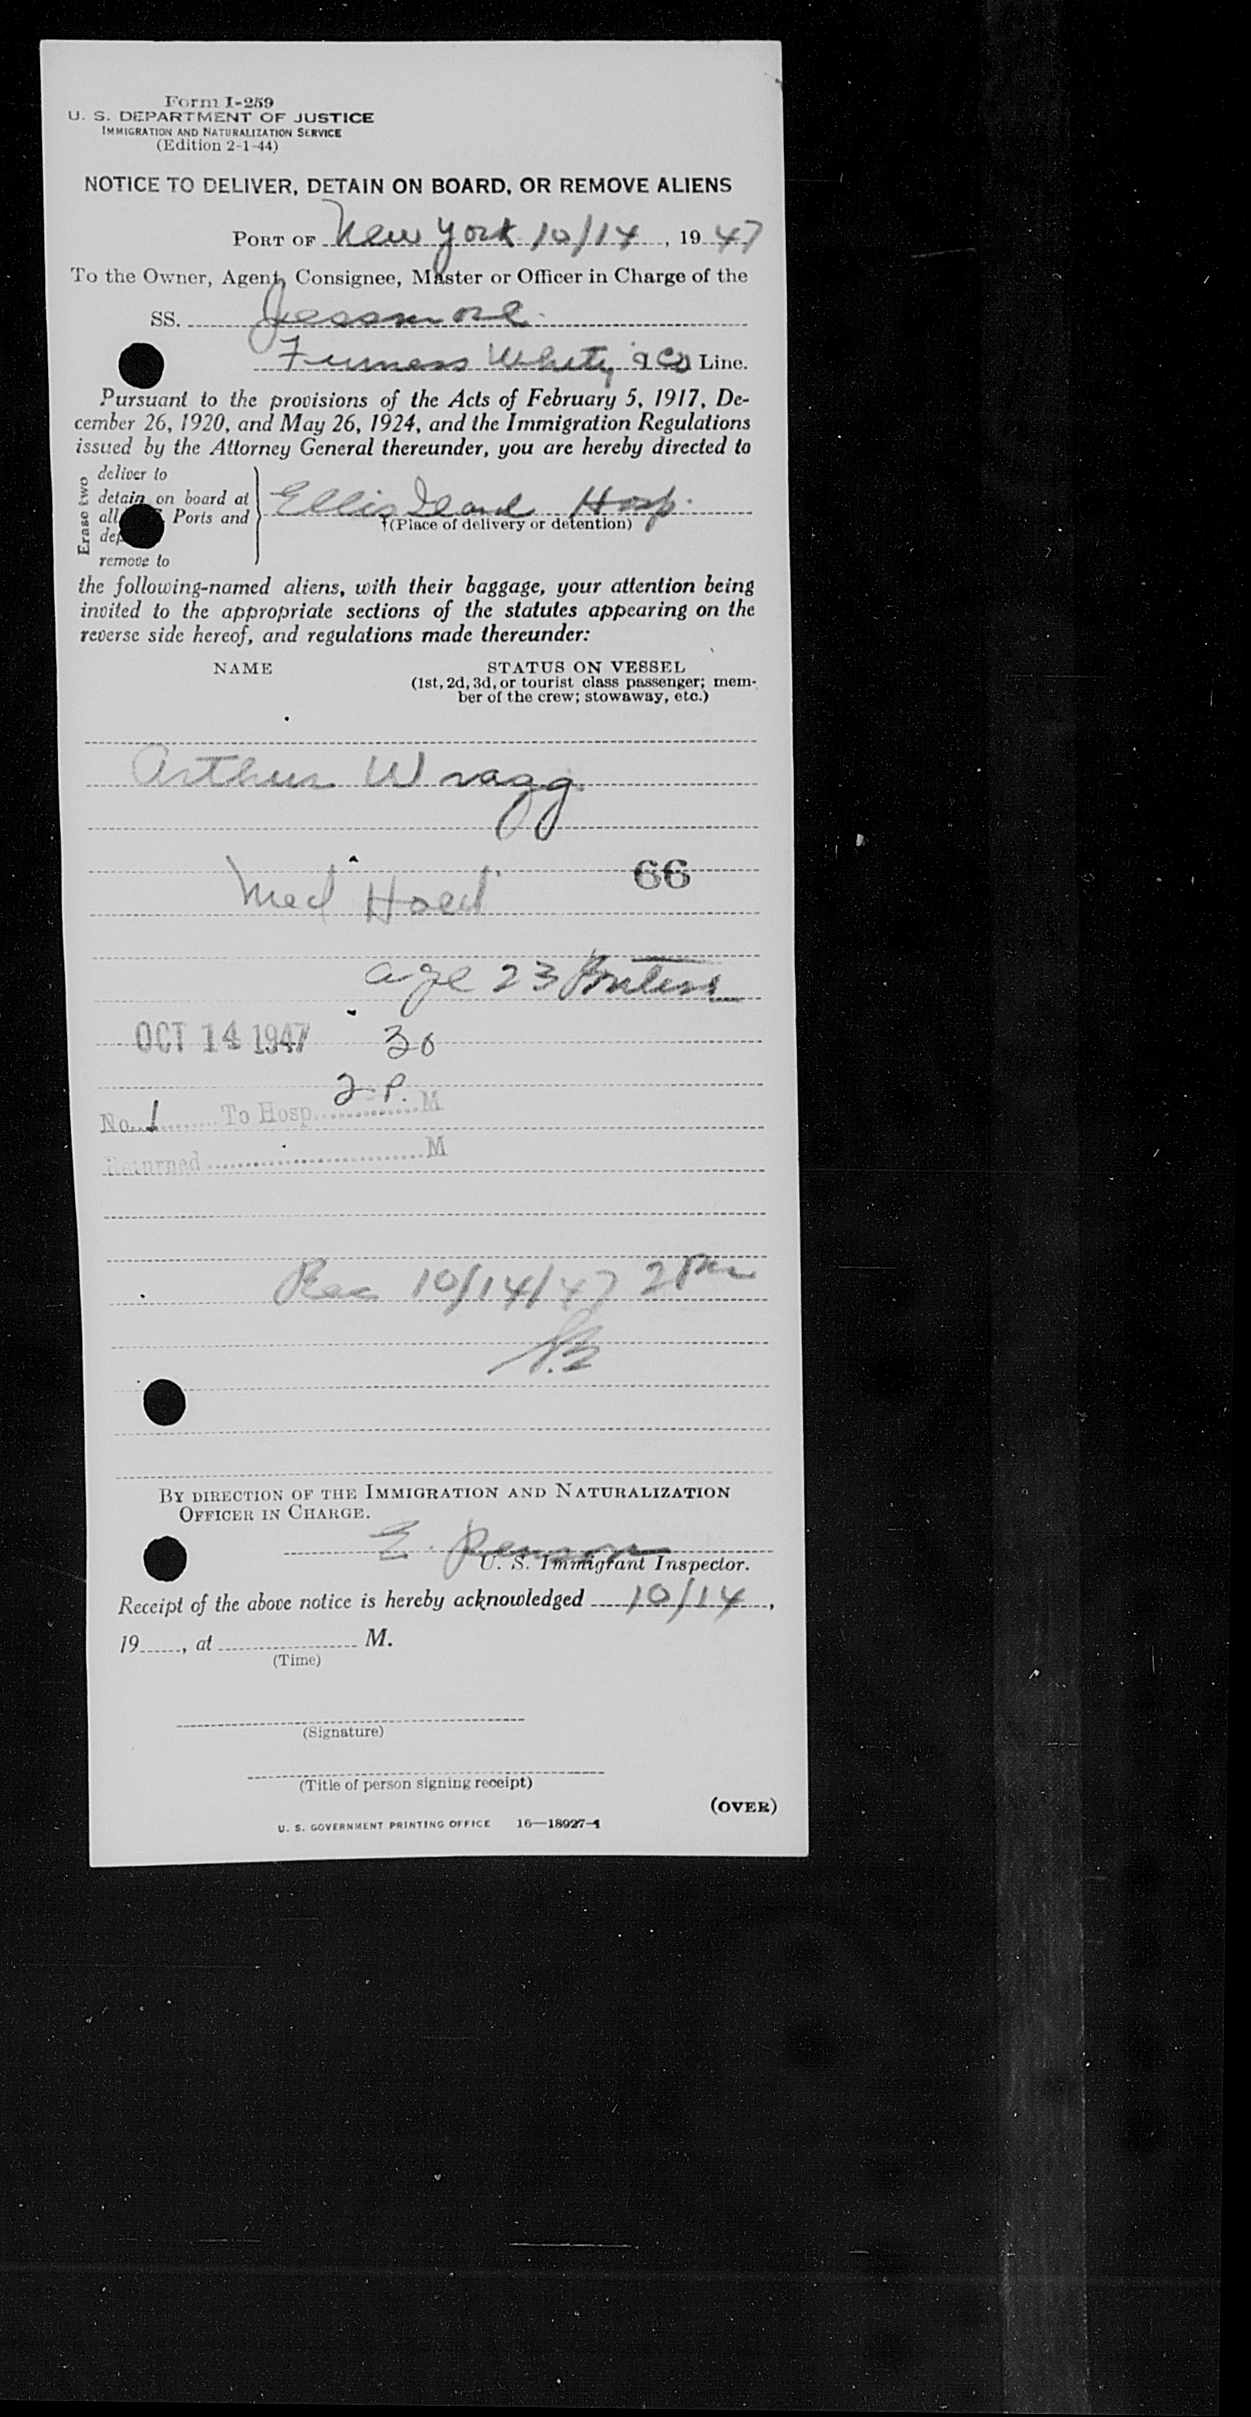 Form I-259
U. S. DEPARTMENT OF JUSTICE
IMMIGRATION AND NATURALIZATION SERVICE
(Edition 2-1-44)
NOTICE TO DELIVER, DETAIN ON BOARD, OR REMOVE ALIENS
PORT OF New York 10/14, 1947
To the Owner, Agent, Consignee, Master or Officer in Charge of the
SS. Jessmore
Furness Whity & Co Line.
Pursuant to the provisions of the Acts of February 5, 1917, De-
cember 26, 1920, and May 26, 1924, and the Immigration Regulations
issued by the Attorney General thereunder, you are hereby directed to
Erase two
deliver to
detain on board at
all Ports and
remove to
Ellis Iland Hosp.
(Place of delivery or detention)
the following-named aliens, with their baggage, your attention being
invited to the appropriate sections of the statutes appearing on the
reverse side hereof, and regulations made thereunder:
NAME STATUS ON VESSEL
(1st, 2d, 3d, or tourist class passenger; mem-
ber of the crew; stowaway, etc.)
Arthur Wragg
66
Med Hoed
age 23
OCT 14 1947 30
2 P.
No. 1 To Hosp. M
Returned M
Rec 10/14/47 2 PM
BY DIRECTION OF THE IMMIGRATION AND NATURALIZATION
OFFICER IN CHARGE.
E. Penson
U. S. Immigrant Inspector.
Receipt of the above notice is hereby acknowledged 10/14,
19, at M.
(Time)
(Signature)
(Title of person signing receipt)
(OVER)
U. S. GOVERNMENT PRINTING OFFICE 16—18927-1